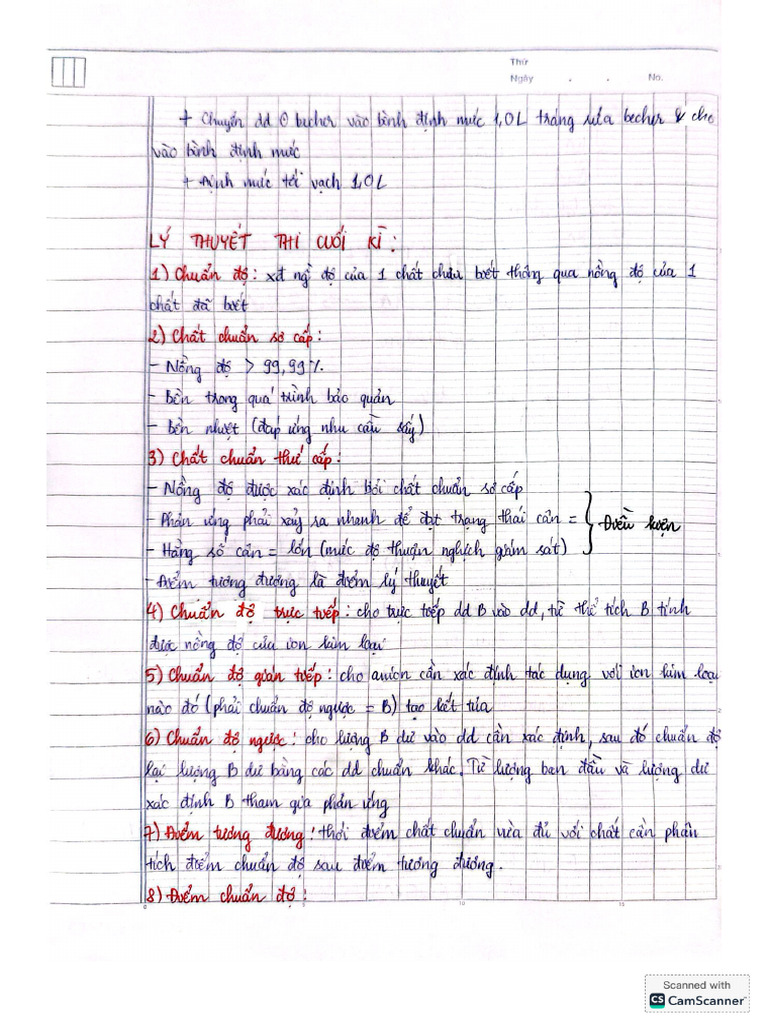 Thứ
Ngày . . No.
+ Chuyển dd ở becher vào bình định mức 1,0L tráng rửa becher & cho
vào bình định mức
+ Định mức tới vạch 1,0L
LÝ THUYẾT THI CUỐI KÌ:
1) Chuẩn độ: xđ ng̀ độ của 1 chất chưa biết thông qua nồng độ của 1
chất đã biết
2) Chất chuẩn sơ cấp:
- Nồng độ > 99,99%.
- bền trong quá trình bảo quản
- bền nhiệt (đáp ứng nhu cầu sấy)
3) Chất chuẩn thứ cấp:
- Nồng độ được xác định bởi chất chuẩn sơ cấp
- Phản ứng phải xảy ra nhanh để đạt trạng thái cân =
- Hằng số cân = lớn (mức độ thuận nghịch giám sát)
Điều kiện
- Điểm tương đương là điểm lý thuyết
4) Chuẩn độ trực tiếp: cho trực tiếp dd B vào dd, từ thể tích B tính
được nồng độ của ion kim loại
5) Chuẩn độ gián tiếp: cho anion cần xác định tác dụng với ion kim loại
nào đó (phải chuẩn độ ngược = B) tạo kết tủa
6) Chuẩn độ ngược: cho lượng B dư vào dd cần xác định, sau đó chuẩn độ
lại lượng B dư bằng các dd chuẩn khác. Từ lượng ban đầu và lượng dư
xác định B tham gia phản ứng
7) Điểm tương đương: thời điểm chất chuẩn vừa đủ với chất cần phân
tích điểm chuẩn độ sau điểm tương đương.
8) Điểm chuẩn độ:
0 5 10 15
Scanned with
CS CamScanner